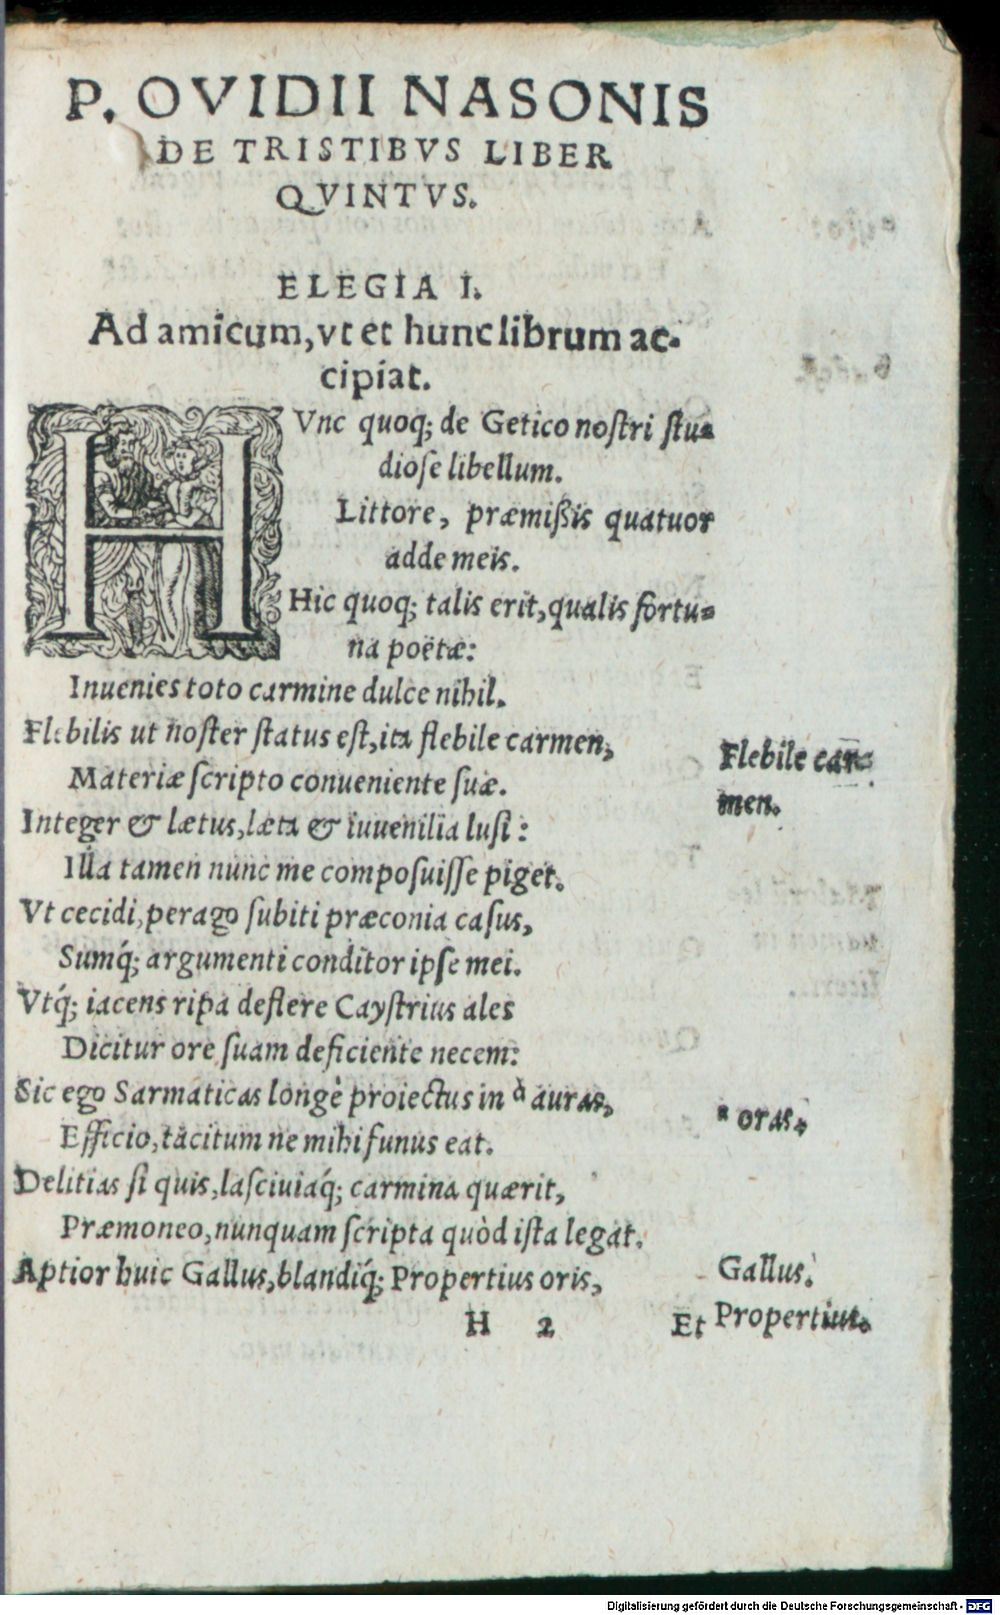 P. OVIDII NASONIS
DE TRISTIBVS LIBER
QVINTVS.
ELEGIA I.
Ad amicum, vt et hunc librum ac-
cipiat.
HVnc quoq; de Getico noſtri ſtu-
dioſe libellum.
Littore, præmiſſis quatuor
adde meis.
Hic quoq; talis erit, qualis fortu-
na poëtæ:
Inuenies toto carmine dulce nihil.
Flebilis ut noſter ſtatus eſt, ita flebile carmen,
Flebile car-
men.
Materiæ ſcripto conueniente ſuæ.
Integer & lætus, læta & iuuenilia luſi:
Illa tamen nunc me compoſuiſſe piget.
Vt cecidi, perago ſubiti præconia caſus,
Sumq́; argumenti conditor ipſe mei.
Vtq́; iacens ripa deflere Cayſtrius ales
Dicitur ore ſuam deficiente necem:
Sic ego Sarmaticas longè proiectus in ª auras,
ª oras.
Efficio, tacitum ne mihi funus eat.
Delitias ſi quis, laſciuiaq́; carmina quærit,
Præmoneo, nunquam ſcripta quòd iſta legat.
Aptior huic Gallus, blandiq́; Propertius oris,
Gallus.
Propertius.
H 2 Et
Digitalisierung gefördert durch die Deutsche Forschungsgemeinschaft - DFG